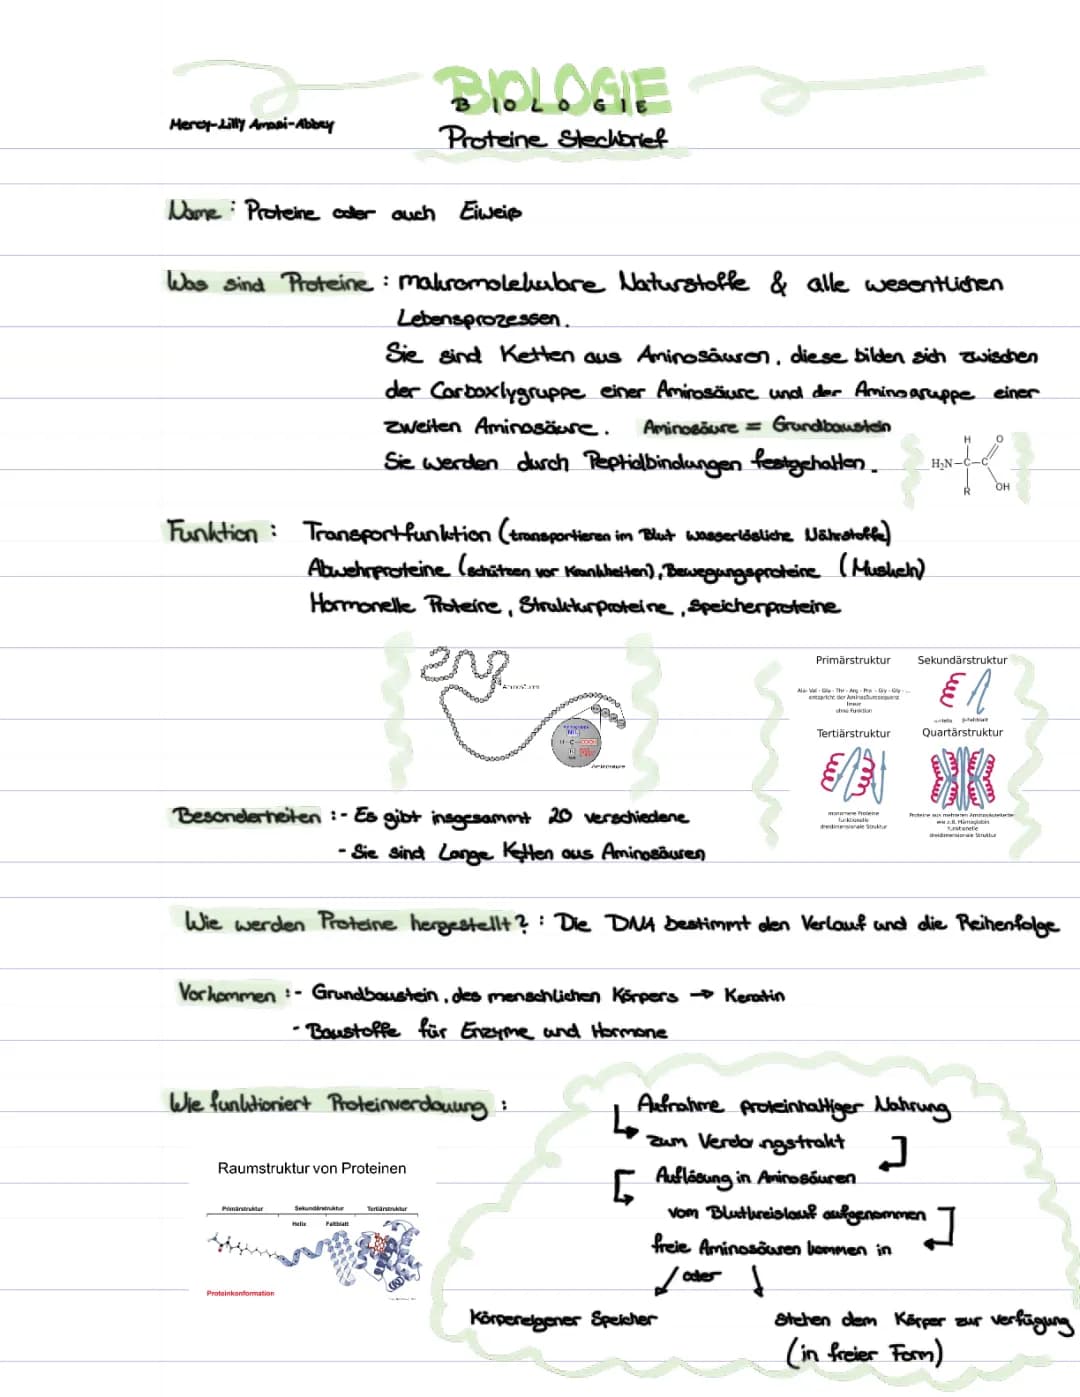 BIOLOGIE
BIOLOGIE
Mercy-Lilly Amasi-Abbey
Proteine Steckbrief
Name : Proteine oder auch Eiweiß
Was sind Proteine : makromolekulare Naturstoffe & alle wesentlichen
Lebensprozessen.
Sie sind Ketten aus Aminosäuren, diese bilden sich zwischen
der Carboxlygruppe einer Aminosäure und der Aminogruppe einer
zweiten Aminosäure. Aminosäure = Grundbaustein
Sie werden durch Peptidbindungen festgehalten.
H O
H₂N-C-C
R OH
Funktion : Transportfunktion (transportieren im Blut wasserlösliche Nährstoffe)
Abwehrproteine (schützen vor Krankheiten), Bewegungsproteine (Muskeln)
Hormonelle Proteine, Strukturproteine, Speicherproteine
Primärstruktur Sekundärstruktur
Ala- Val - Gly - Thr - Arg - Pro - Gly - Gly - ...
entspricht der Aminosäuresequenz
linear
ohne Funktion
α-Helix β-Faltblatt
Tertiärstruktur Quartärstruktur
monomere Proteine
funktionelle
dreidimensionale Struktur
Proteine aus mehreren Aminosäureketten
wie z.B. Hämoglobin
funktionelle
dreidimensionale Struktur
Besonderheiten :- Es gibt insgesammt 20 verschiedene
- Sie sind Lange Ketten aus Aminosäuren
Wie werden Proteine hergestellt? : Die DNA bestimmt den Verlauf und die Reihenfolge
Vorkommen :- Grundbaustein, des menschlichen Körpers → Keratin
- Baustoffe für Enzyme und Hormone
Wie funktioniert Proteinverdauung :
Aufnahme proteinhaltiger Nahrung
zum Verdauungstrakt
Auflösung in Aminosäuren
vom Blutkreislauf aufgenommen
freie Aminosäuren kommen in
oder
Körpereigener Speicher
stehen dem Körper zur verfügung
(in freier Form)
Raumstruktur von Proteinen
Primärstruktur Sekundärstruktur Tertiärstruktur
Helix Faltblatt
Proteinkonformation